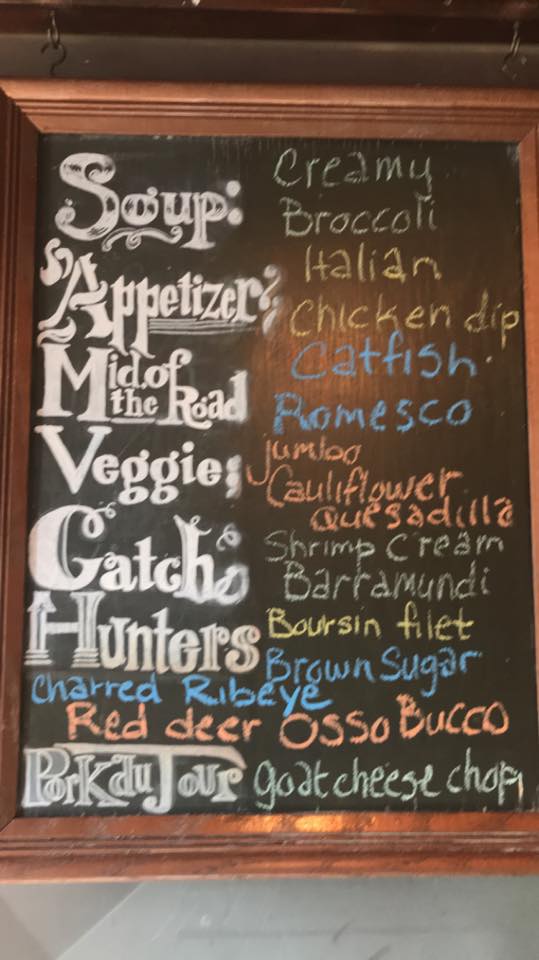 Soup: Creamy
Broccoli
Appetizer: Italian
Chicken dip
Mid.of Catfish
the Road Romesco
Veggie: Jumbo
Cauliflower
Quesadilla
Catch: Shrimp Cream
Barramundi
Hunters Boursin filet
Brown Sugar
Charred Ribeye
Red deer Osso Bucco
Pork du Jour goat cheese chop